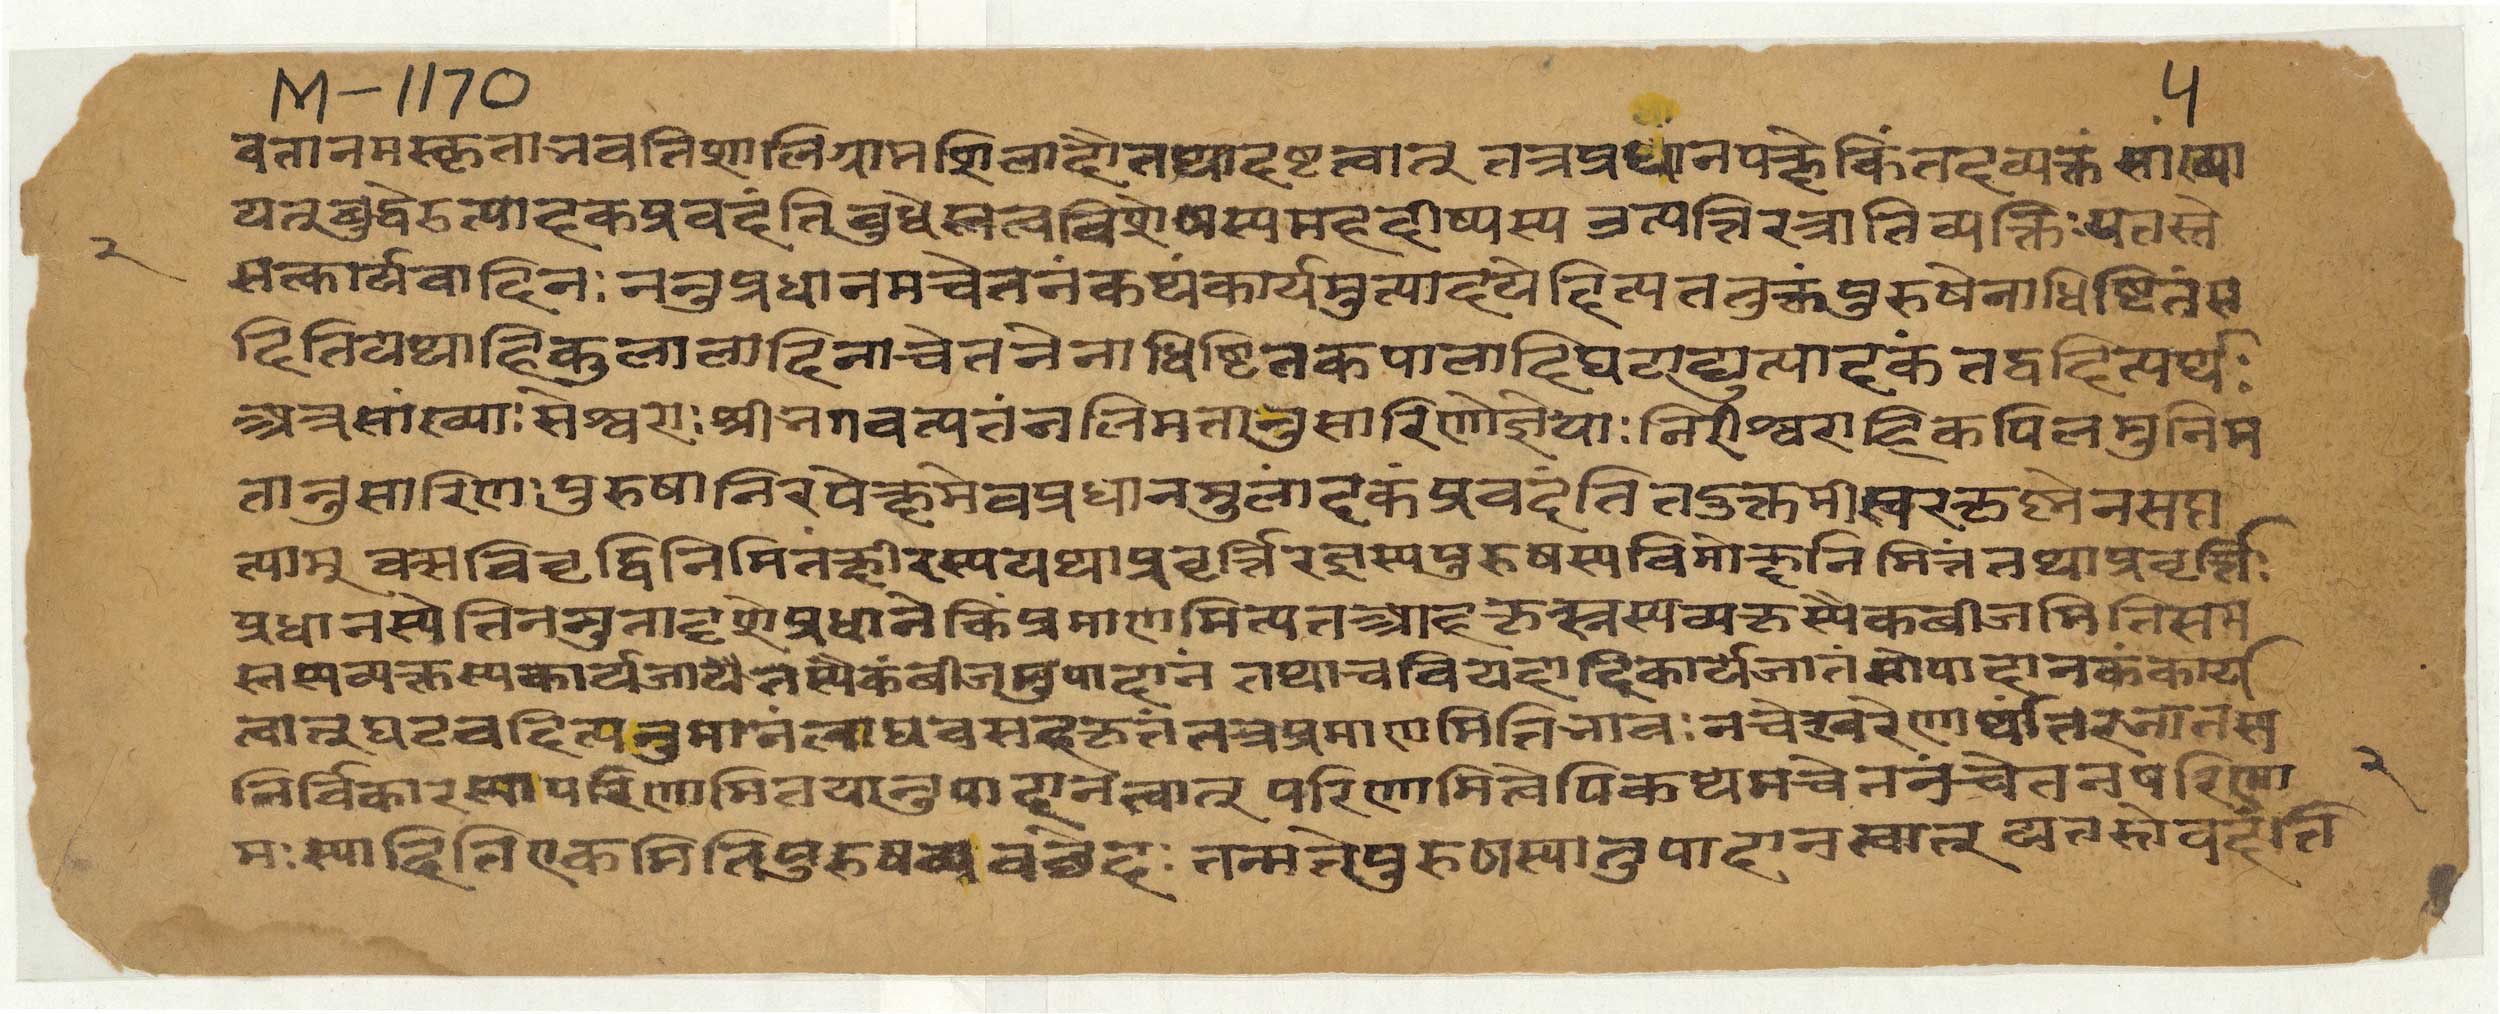 M-1170
4
वतानमस्कृताभवतिशालिग्रामशिलादौतथादृष्टत्वात् तत्रप्रधानपक्षेकिंतदव्यक्तं सांख्या
यत् बुद्धेरुत्पादकप्रवदंति बुधेस्तत्वविशेषस्यमहदीष्यस्य उत्पत्तिरत्राभिव्यक्तिः यतस्ते
२
सत्कार्यवादिनः ननुप्रधानमचेतनंकथंकार्यमुत्पादयेदित्यततुक्तंपुरुषेनाधिष्टितंस
दितियथाहिकुलालादिनाचेतनेनाधिष्टितकपालादिघटाद्युत्पादकं तद्वदित्यर्थः
अत्रसांख्याः सेश्वराः श्रीभगवत्पतंजलिमतानुसारिणोज्ञेयाः निरीश्वराहिकपिलमुनिम
तानुसारिणः पुरुषानिरपेक्षमेवप्रधानमुत्पादकंप्रवदंति तदुक्तमीस्वरकृष्णेनसप्त
त्याम् वत्सविवृद्धिनिमितंक्षीरस्ययथाप्रवृर्त्तिरज्ञस्यपुरुषस्यविमोक्षनिमित्तं तथाप्रवृर्त्तिः
प्रधानस्येतिननुतादृशेप्रधानेकिंप्रमाणमित्यतआह कृत्स्नस्यव्यक्तस्यैकबीजमितिसम
स्तस्यव्यक्तस्यकार्यजातस्यैकंबीजमुपादानं तथाचवियदादिकार्यजातंसोपादानकंकार्य
त्वात् घटवदित्यनुमानंलाघवसहकृतंतत्रप्रमाणमितिभावः नचेश्वरेणार्थांतरतातस
निर्विकारस्यापरिणामितयानुपादानत्वात् परिणामित्वेपिकथमचेतनंचेतनपरिणा
२
मः स्यादितिएकमितिपुरुषव्यवछेदः तन्मतेपुरुषस्यानुपादानत्वात् अतस्तोवदंति